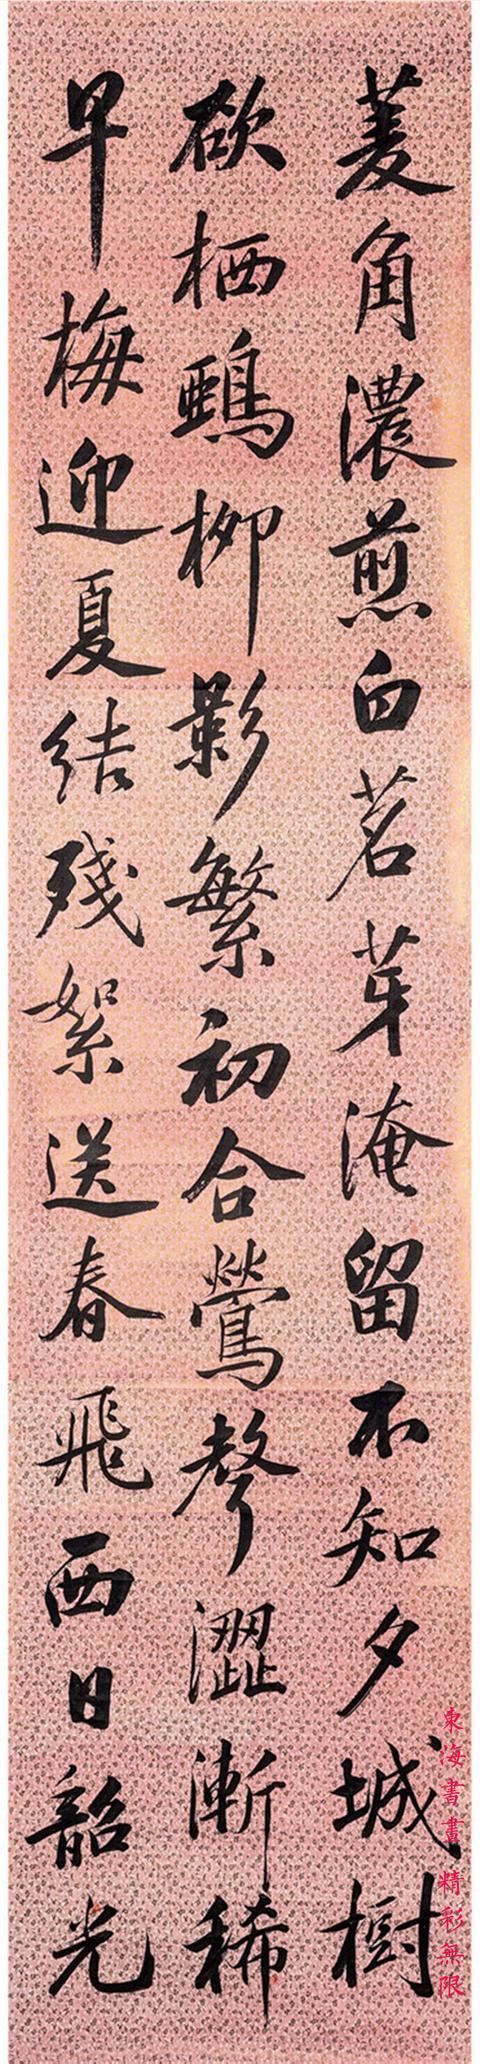 菱角濃煎白茗芽淹留不知夕城樹
欲栖鵶柳影繁初合鶯聲澀漸稀
早梅迎夏結殘絮送春飛西日韶光
東海書畫 精彩無限